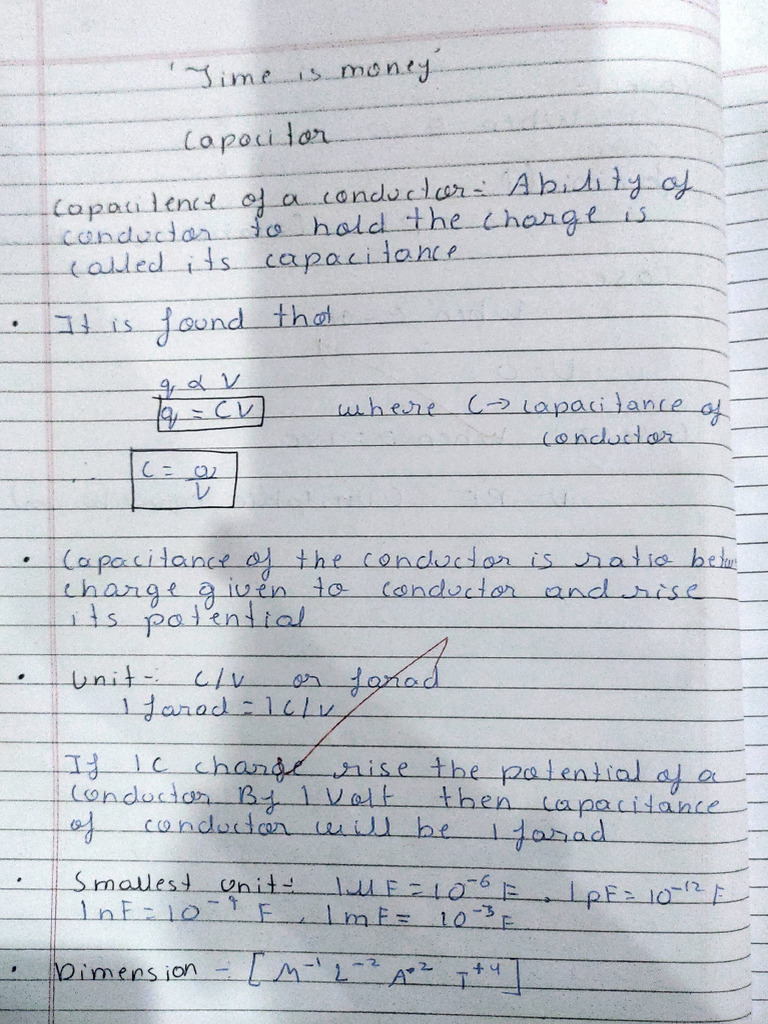 'Time is money'
Capacitor
Capacitence of a conductor:- Ability of
conductor to hold the charge is
called its capacitance
• It is found that
q α V
q = CV where C → capacitance of
conductor
∴ C = Q/V
• Capacitance of the conductor is ratio betw
charge given to conductor and rise
its potential
• Unit:- C/V or farad
1 farad = 1C/V
If 1C charge rise the potential of a
conductor By 1 Volt then capacitance
of conductor will be 1 farad
• Smallest unit:- 1μF = 10⁻⁶ F, 1pF = 10⁻¹² F
1nF = 10⁻⁹ F, 1mF = 10⁻³ F
• Dimension - [M⁻¹ L⁻² A⁺² T⁺⁴]